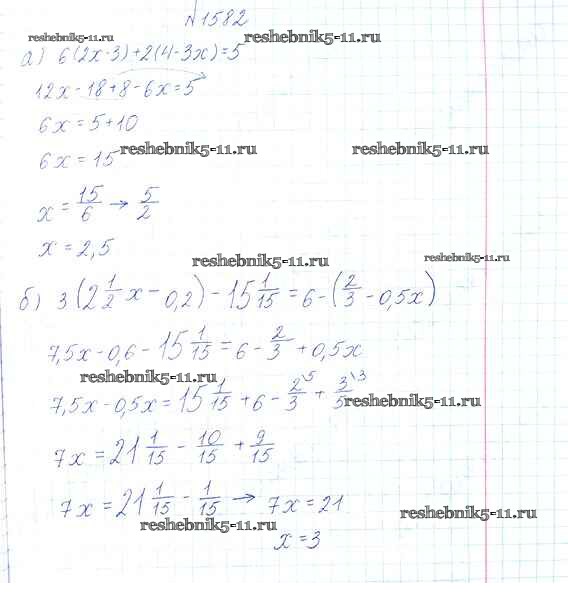 №1582
reshebnik5-11.ru reshebnik5-11.ru
а) 6(2x-3)+2(4-3x)=5
12x-18+8-6x=5
6x=5+10
6x=15
reshebnik5-11.ru reshebnik5-11.ru
x=15/6→5/2
x=2,5
reshebnik5-11.ru reshebnik5-11.ru
б) 3(2 1/2 x-0,2)-15 1/15=6-(2/3-0,5x)
7,5x-0,6-15 1/15=6-2/3+0,5x
reshebnik5-11.ru
7,5x-0,5x=15 1/15+6-2\5/3+3\3/5
reshebnik5-11.ru
7x=21 1/15-10/15+9/15
7x=21 1/15-1/15→7x=21
reshebnik5-11.ru reshebnik5-11.ru
x=3